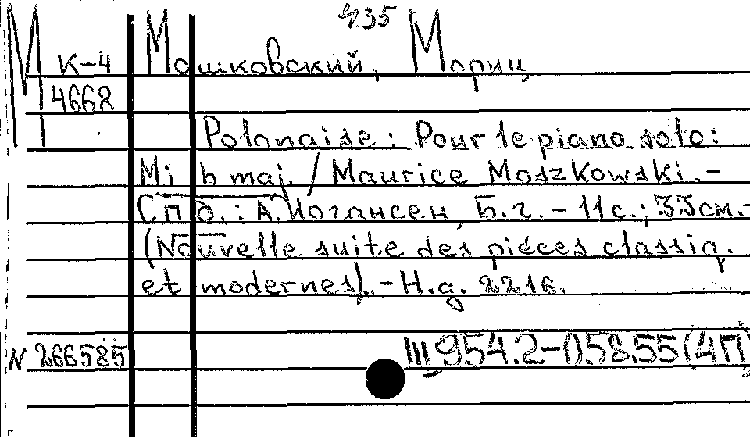 435
М К-4 Мошковский, Мориц
4668
Polonaise: Pour le piano solo:
Mi b maj. / Maurice Moszkowski. -
Спб.: А. Иогансен, Б.г. - 11с.; 33см. -
(Nouvelle suite des pièces classiq.
et modernes). - Н.д. 2216.
N 266585 Ш 954.2-058.55(4П)